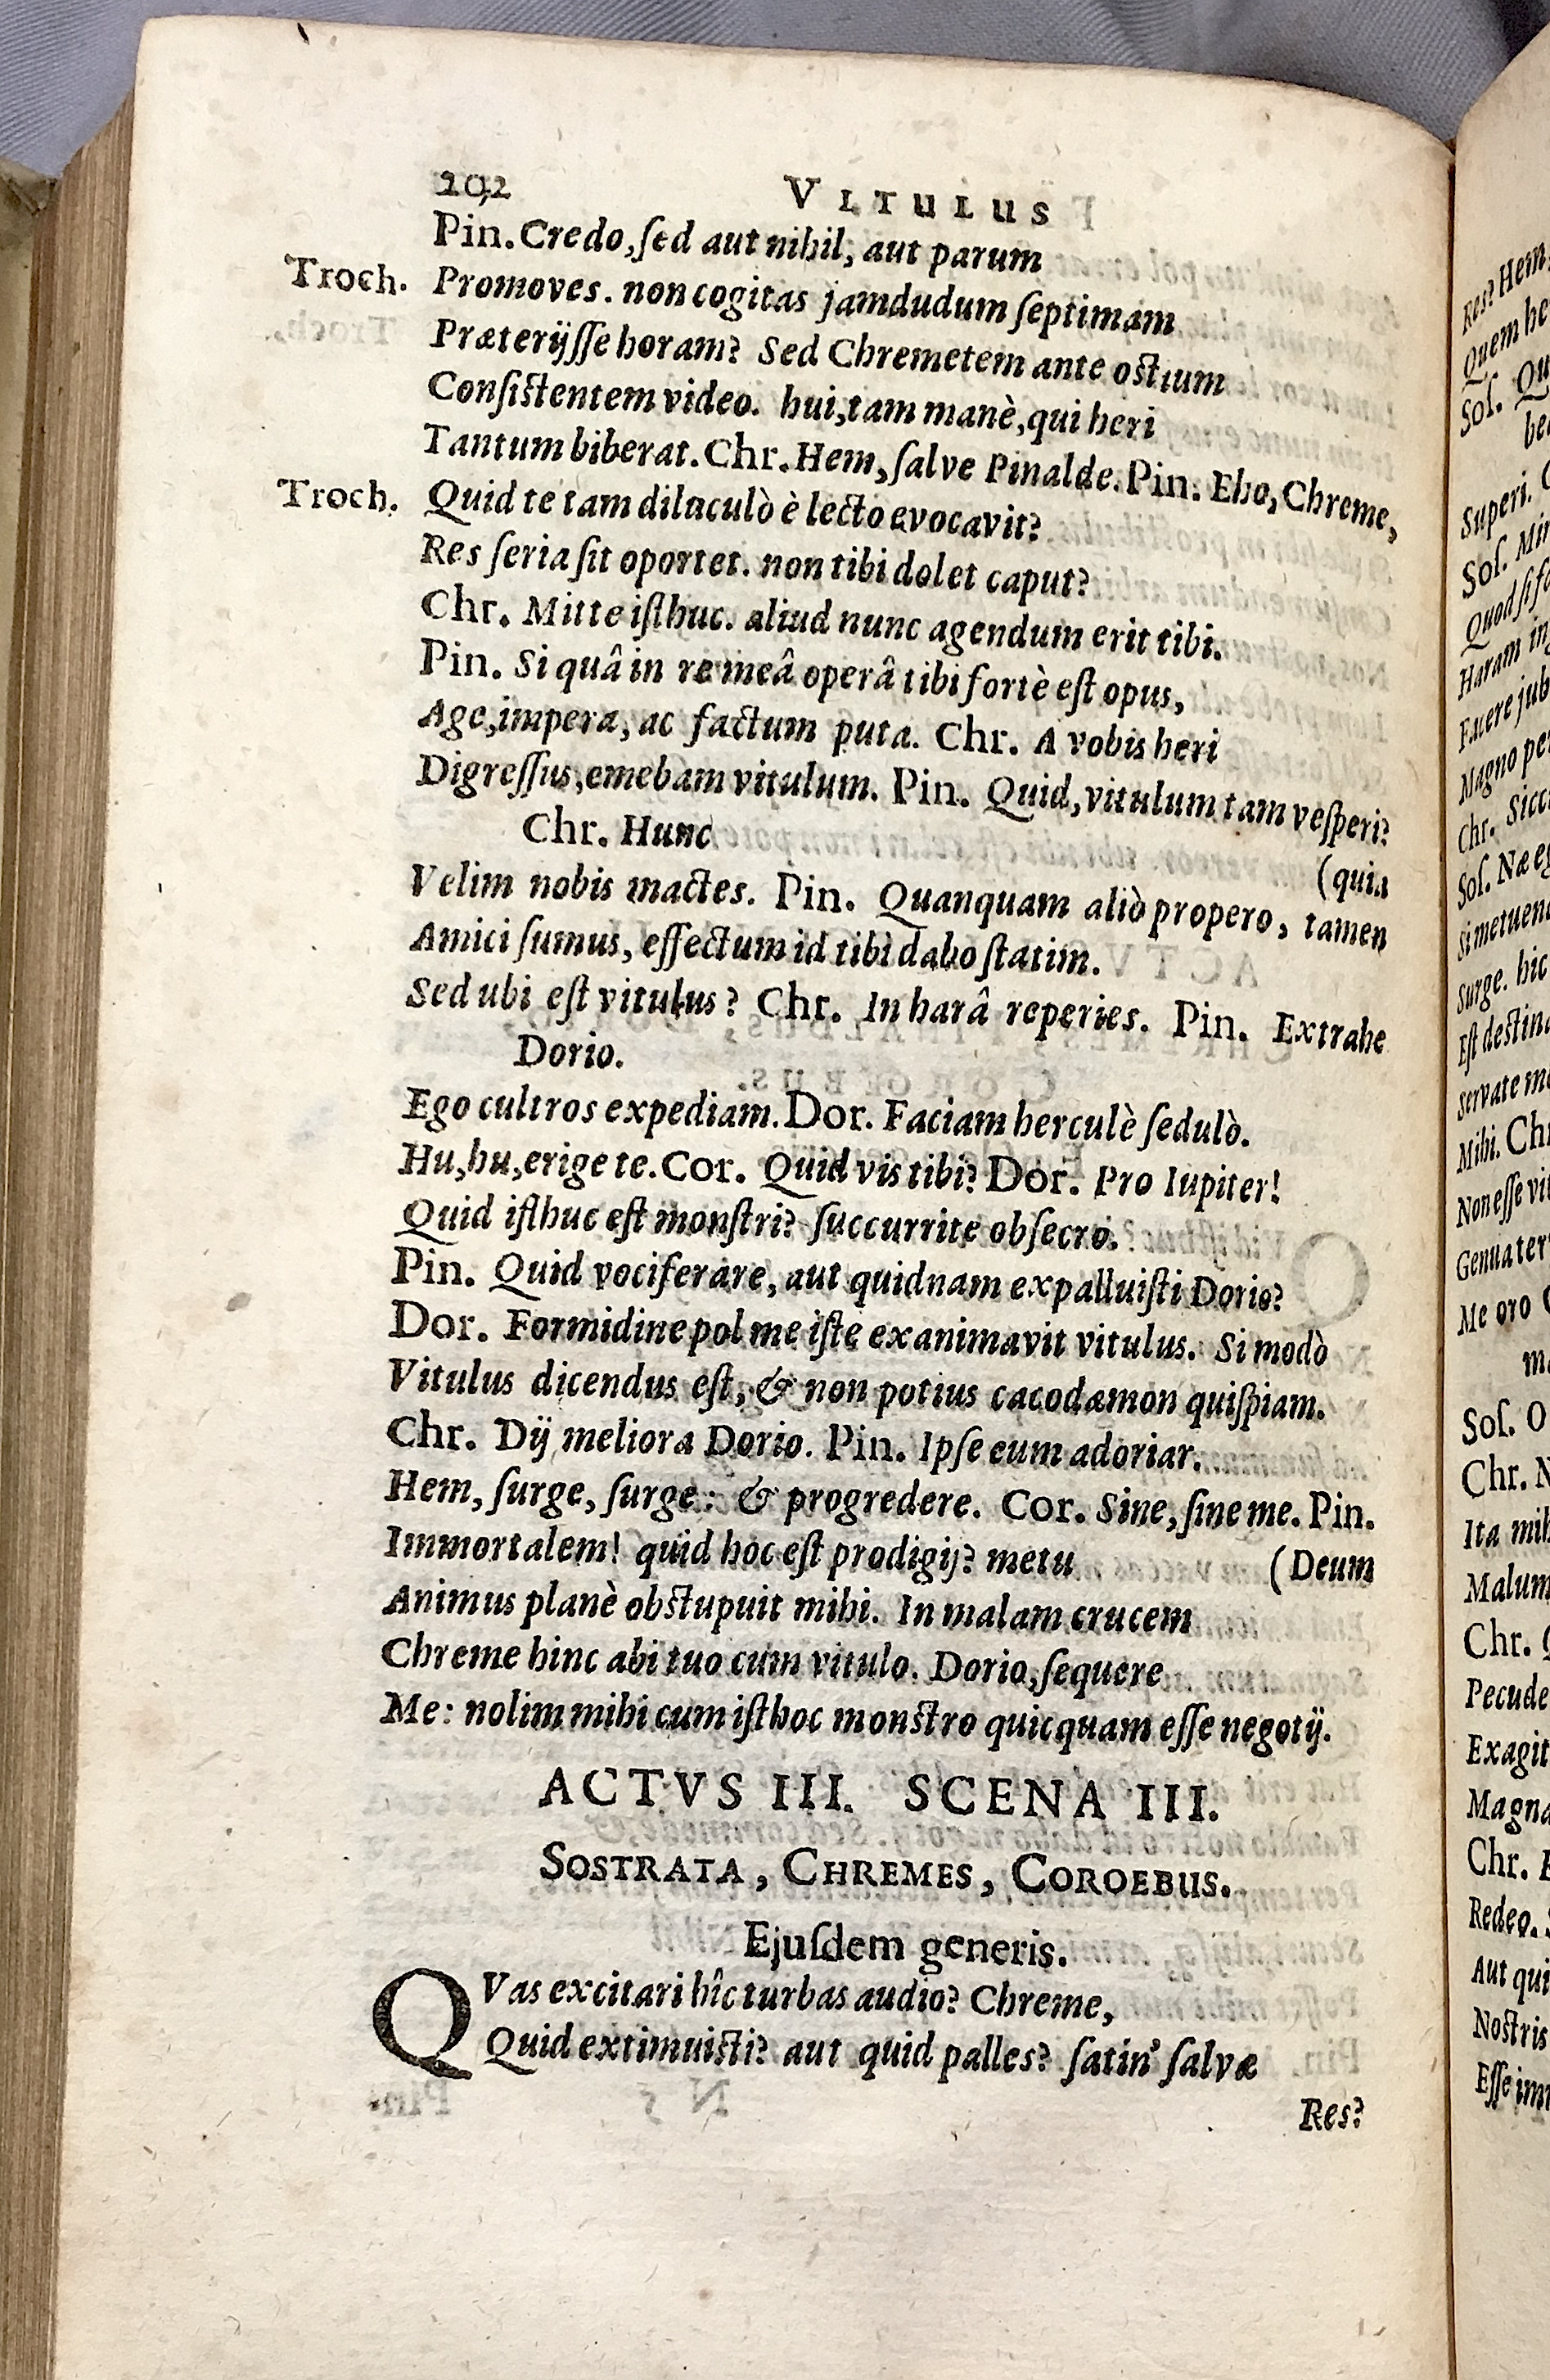 202
VITULUS
Pin. Credo, ſed aut nihil, aut parum
Troch. Promoves. non cogitas jamdudum ſeptimam
Præterijſſe horam? Sed Chremetem ante oſtium
Conſiſtentem video. hui, tam manè, qui heri
Tantum biberat. Chr. Hem, ſalve Pinalde. Pin. Eho, Chreme,
Troch. Quid te tam diluculò è lecto evocavit?
Res ſeria ſit oportet. non tibi dolet caput?
Chr. Mitte iſthuc. aliud nunc agendum erit tibi.
Pin. Si quâ in re meâ operâ tibi fortè eſt opus,
Age, impera, ac factum puta. Chr. A vobis heri
Digreſſus, emebam vitulum. Pin. Quid, vitulum tam veſperi?
Chr. Hunc
(quia
Velim nobis mactes. Pin. Quanquam aliò propero, tamen
Amici ſumus, effectum id tibi dabo ſtatim.
Sed ubi eſt vitulus? Chr. In harâ reperies. Pin. Extrahe
Dorio.
Ego cultros expediam. Dor. Faciam herculè ſedulò.
Hu, hu, erige te. Cor. Quid vis tibi? Dor. Pro Iupiter!
Quid iſthuc eſt monſtri? ſuccurrite obſecro.
Pin. Quid vociferare, aut quidnam expalluiſti Dorio?
Dor. Formidine pol me iſte exanimavit vitulus. Si modò
Vitulus dicendus eſt, & non potius cacodæmon quiſpiam.
Chr. Dij meliora Dorio. Pin. Ipſe eum adoriar.
Hem, ſurge, ſurge: & progredere. Cor. Sine, ſine me. Pin.
Immortalem! quid hoc eſt prodigij? metu (Deum
Animus planè obſtupuit mihi. In malam crucem
Chreme hinc abi tuo cum vitulo. Dorio, ſequere
Me: nolim mihi cum iſthoc monſtro quicquam eſſe negotij.
ACTVS III. SCENA III.
SOSTRATA, CHREMES, COROEBUS.
Ejuſdem generis.
QVas excitari hîc turbas audio? Chreme,
Quid extimuiſti? aut quid palles? ſatin' ſalvæ
Res?